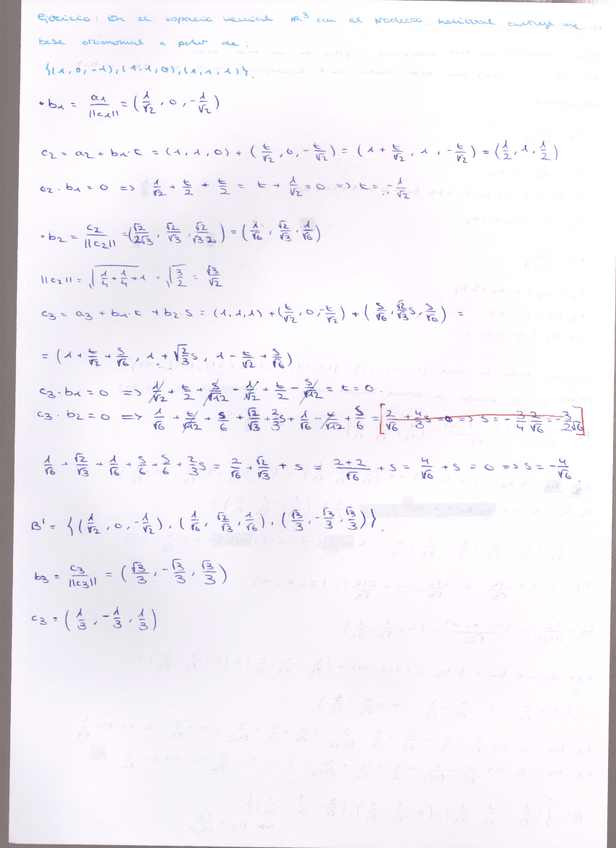 Ejercicio: En el espacio vectorial R³ con el producto habitual construye una
base ortonormal a partir de:
{(1, 0, -1), (1, 1, 0), (1, 1, 1)}.
• b₁ = a₁/||c₁|| = (1/√2, 0, -1/√2)
c₂ = a₂ + b₁·t = (1, 1, 0) + (t/√2, 0, -t/√2) = (1 + t/√2, 1, -t/√2) = (1/2, 1, 1/2)
c₂ · b₁ = 0 => 1/√2 + t/2 + t/2 = t + 1/√2 = 0 => t = -1/√2
• b₂ = c₂/||c₂|| = (√2/2√3, √2/√3, √2/√3·2) = (1/√6, √2/√3, 1/√6)
||c₂|| = √(1/4 + 1/4 + 1) = √(3/2) = √3/√2
c₃ = a₃ + b₁·t + b₂ s = (1, 1, 1) + (t/√2, 0, -t/√2) + (s/√6, √2/√3 s, s/√6) =
= (1 + t/√2 + s/√6, 1 + √2/3 s, 1 - t/√2 + s/√6)
c₃ · b₁ = 0 => 1/√2 + t/2 + s/√12 - 1/√2 + t/2 - s/√12 = t = 0.
c₃ · b₂ = 0 => 1/√6 + t/√12 + s/6 + √2/√3 + 2/3 s + 1/√6 - t/√12 + s/6 = [2/√6 + 4/3 s = 0 => s = -3/4 2/√6 = -3/2√6]
1/√6 + √2/√3 + 1/√6 + s/6 + s/6 + 2/3 s = 2/√6 + √2/√3 + s = (2+2)/√6 + s = 4/√6 + s = 0 => s = -4/√6.
B' = {(1/√2, 0, -1/√2), (1/√6, √2/√3, 1/√6), (√3/3, -√3/3, √3/3)}.
b₃ = c₃/||c₃|| = (√3/3, -√3/3, √3/3)
c₃ = (1/3, -1/3, 1/3)